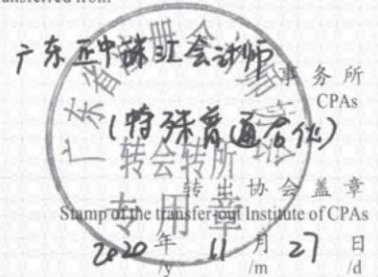 transferred from
广东正中珠江会计师
事务所
CPAs
(特殊普通合伙)
广东省注册会计师协会
转会转所
专用章
转出协会盖章
Stamp of the transfer-out Institute of CPAs
2020年 11月 27日
/y /m /d